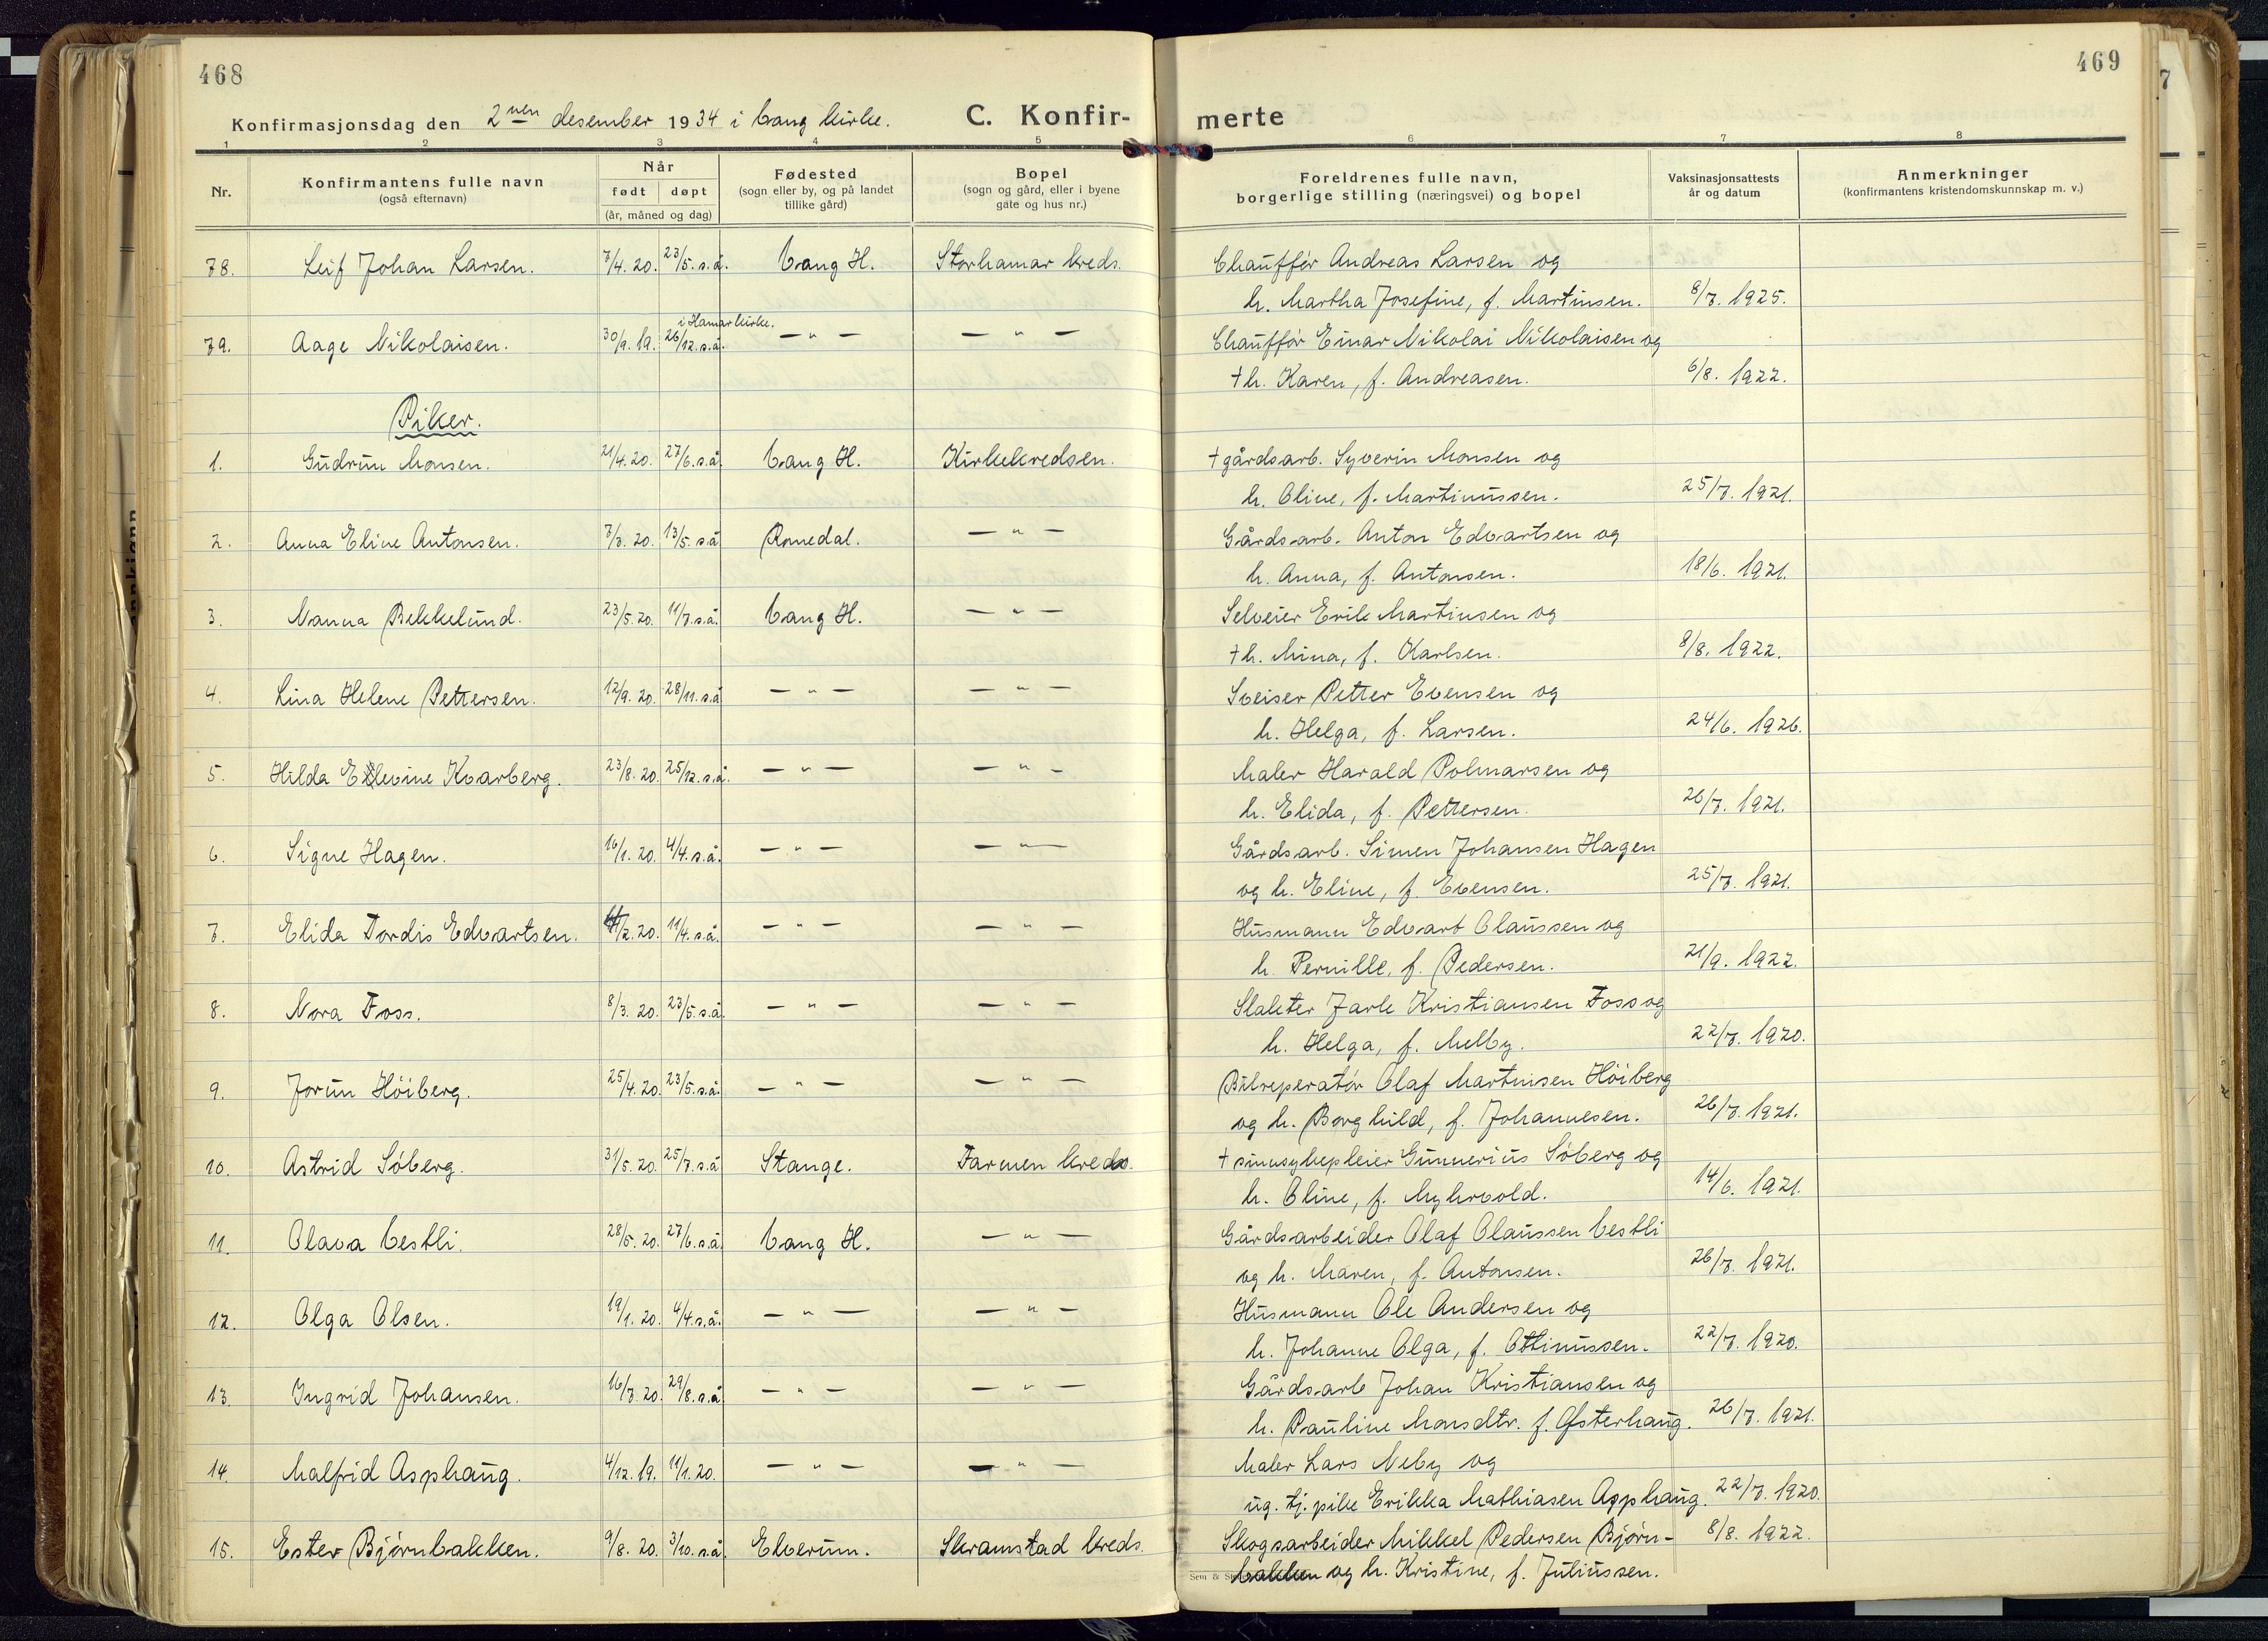 468
Konfirmasjonsdag den 2nen desember 1934 i Vang kirke. C. Konfir-
1 2 3 4 5
Nr. Konfirmantens fulle navn (også efternavn) Når født døpt (år, måned og dag) Fødested (sogn eller by, og på landet tillike gård) Bopel (sogn og gård, eller i byene gate og hus nr.)
78. Leif Johan Larsen. 7/4. 20. 23/5. s.å. Vang H. Storhamar kreds.
i Hamar kirke.
79. Aage Nikolaisen. 30/9. 19. 26/12. s.å. — " — — " —
Piker.
1. Gudrun Monsen. 21/4. 20. 27/6. s.å. Vang H. Kirkekredsen.
2. Anna Eline Antonsen. 7/3. 20. 13/5. s.å. Romedal. — " —
3. Nanna Bekkelund. 23/5. 20. 11/7. s.å. Vang H. — " —
4. Lina Helene Pettersen. 12/9. 20. 28/11. s.å. — " — — " —
5. Hilda Elevine Kvarberg. 23/8. 20. 25/12. s.å. — " — — " —
6. Signe Hagen. 16/1. 20. 4/4. s.å. — " — — " —
7. Elida Tordis Edvartsen. /2. 20. 11/4. s.å. — " — — " —
8. Nora Foss. 8/3. 20. 23/5. s.å. — " — — " —
9. Jorun Höiberg. 25/4. 20. 23/5. s.å. — " — — " —
10. Astrid Söberg. 31/5. 20. 25/7. s.å. Stange. Farmen kreds.
11. Olava Vestli. 28/5. 20. 27/6. s.å. Vang H. — " —
12. Olga Olsen. 19/1. 20. 4/4. s.å. — " — — " —
13. Ingrid Johansen. 16/7. 20. 29/8. s.å. — " — — " —
14. Malfrid Asphaug. 4/12. 19. 11/1. 20. — " — — " —
15. Ester Bjørnbakken. 9/8. 20. 3/10. s.å. Elverum. Skramstad kreds.
469
merte
6 7 8
Foreldrenes fulle navn, borgerlige stilling (næringsvei) og bopel Vaksinasjonsattests år og datum Anmerkninger (konfirmantens kristendomskunnskap m. v.)
Chauffør Andreas Larsen og
h. Martha Josefine, f. Martinsen. 8/7. 1925.
Chauffør Einar Nikolai Nikolaisen og
† h. Karen, f. Andreasen. 6/8. 1922.
† gårdsarb. Syverin Monsen og
h. Oline, f. Martinussen. 25/7. 1921.
Gårdsarb. Anton Edvartsen og
h. Anna, f. Antonsen. 18/6. 1921.
Selveier Erik Martinsen og
† h. Mina, f. Karlsen. 8/8. 1922.
Sveiser Petter Evensen og
h. Helga, f. Larsen. 24/6. 1926.
Maler Harald Polmarsen og
h. Elida, f. Pettersen. 26/7. 1921.
Gårdsarb. Simen Johansen Hagen
og h. Eline, f. Evensen. 25/7. 1921.
Husmann Edvart Olaussen og
h. Pernille, f. Pedersen. 21/9. 1922.
Slakter Jarle Kristiansen Foss og
h. Helga, f. Melby. 22/7. 1920.
Bilreperatör Olaf Martinsen Höiberg
og h. Borghild, f. Johannesen. 26/7. 1921.
† sinnsykepleier Gunnerius Söberg og
h. Oline, f. Myhrvold. 14/6. 1921.
Gårdsarbeider Olaf Olaussen Vestli
og h. Maren, f. Antonsen. 26/7. 1921.
Husmann Ole Andersen og
h. Johanne Olga, f. Ottinussen. 22/7. 1920.
Gårdsarb Johan Kristiansen og
h. Pauline Monsdtr. f. Østerhaug. 26/7. 1921.
Maler Lars Neby og
ug. tj. pike Erikka Mathiasen Asphaug. 22/7. 1920.
Skogsarbeider Mikkel Pedersen Bjørn- 8/8. 1922.
bakken og h. Kristine, f. Juliussen.